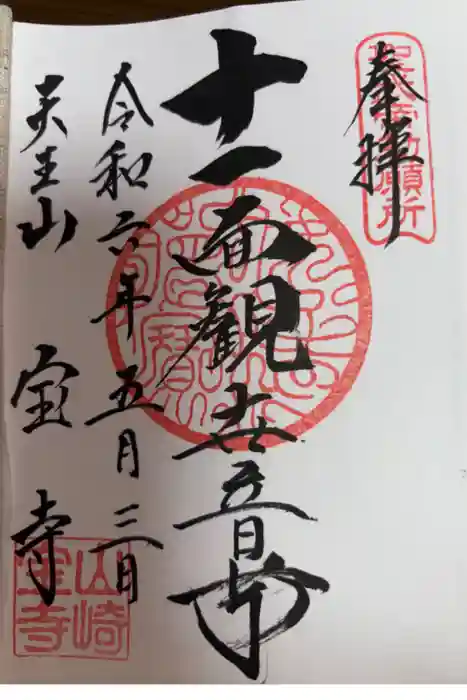 奉拝
聖武帝勅願所
十一面観世音
令和六年五月三日
天王山 宝寺
山崎
宝寺